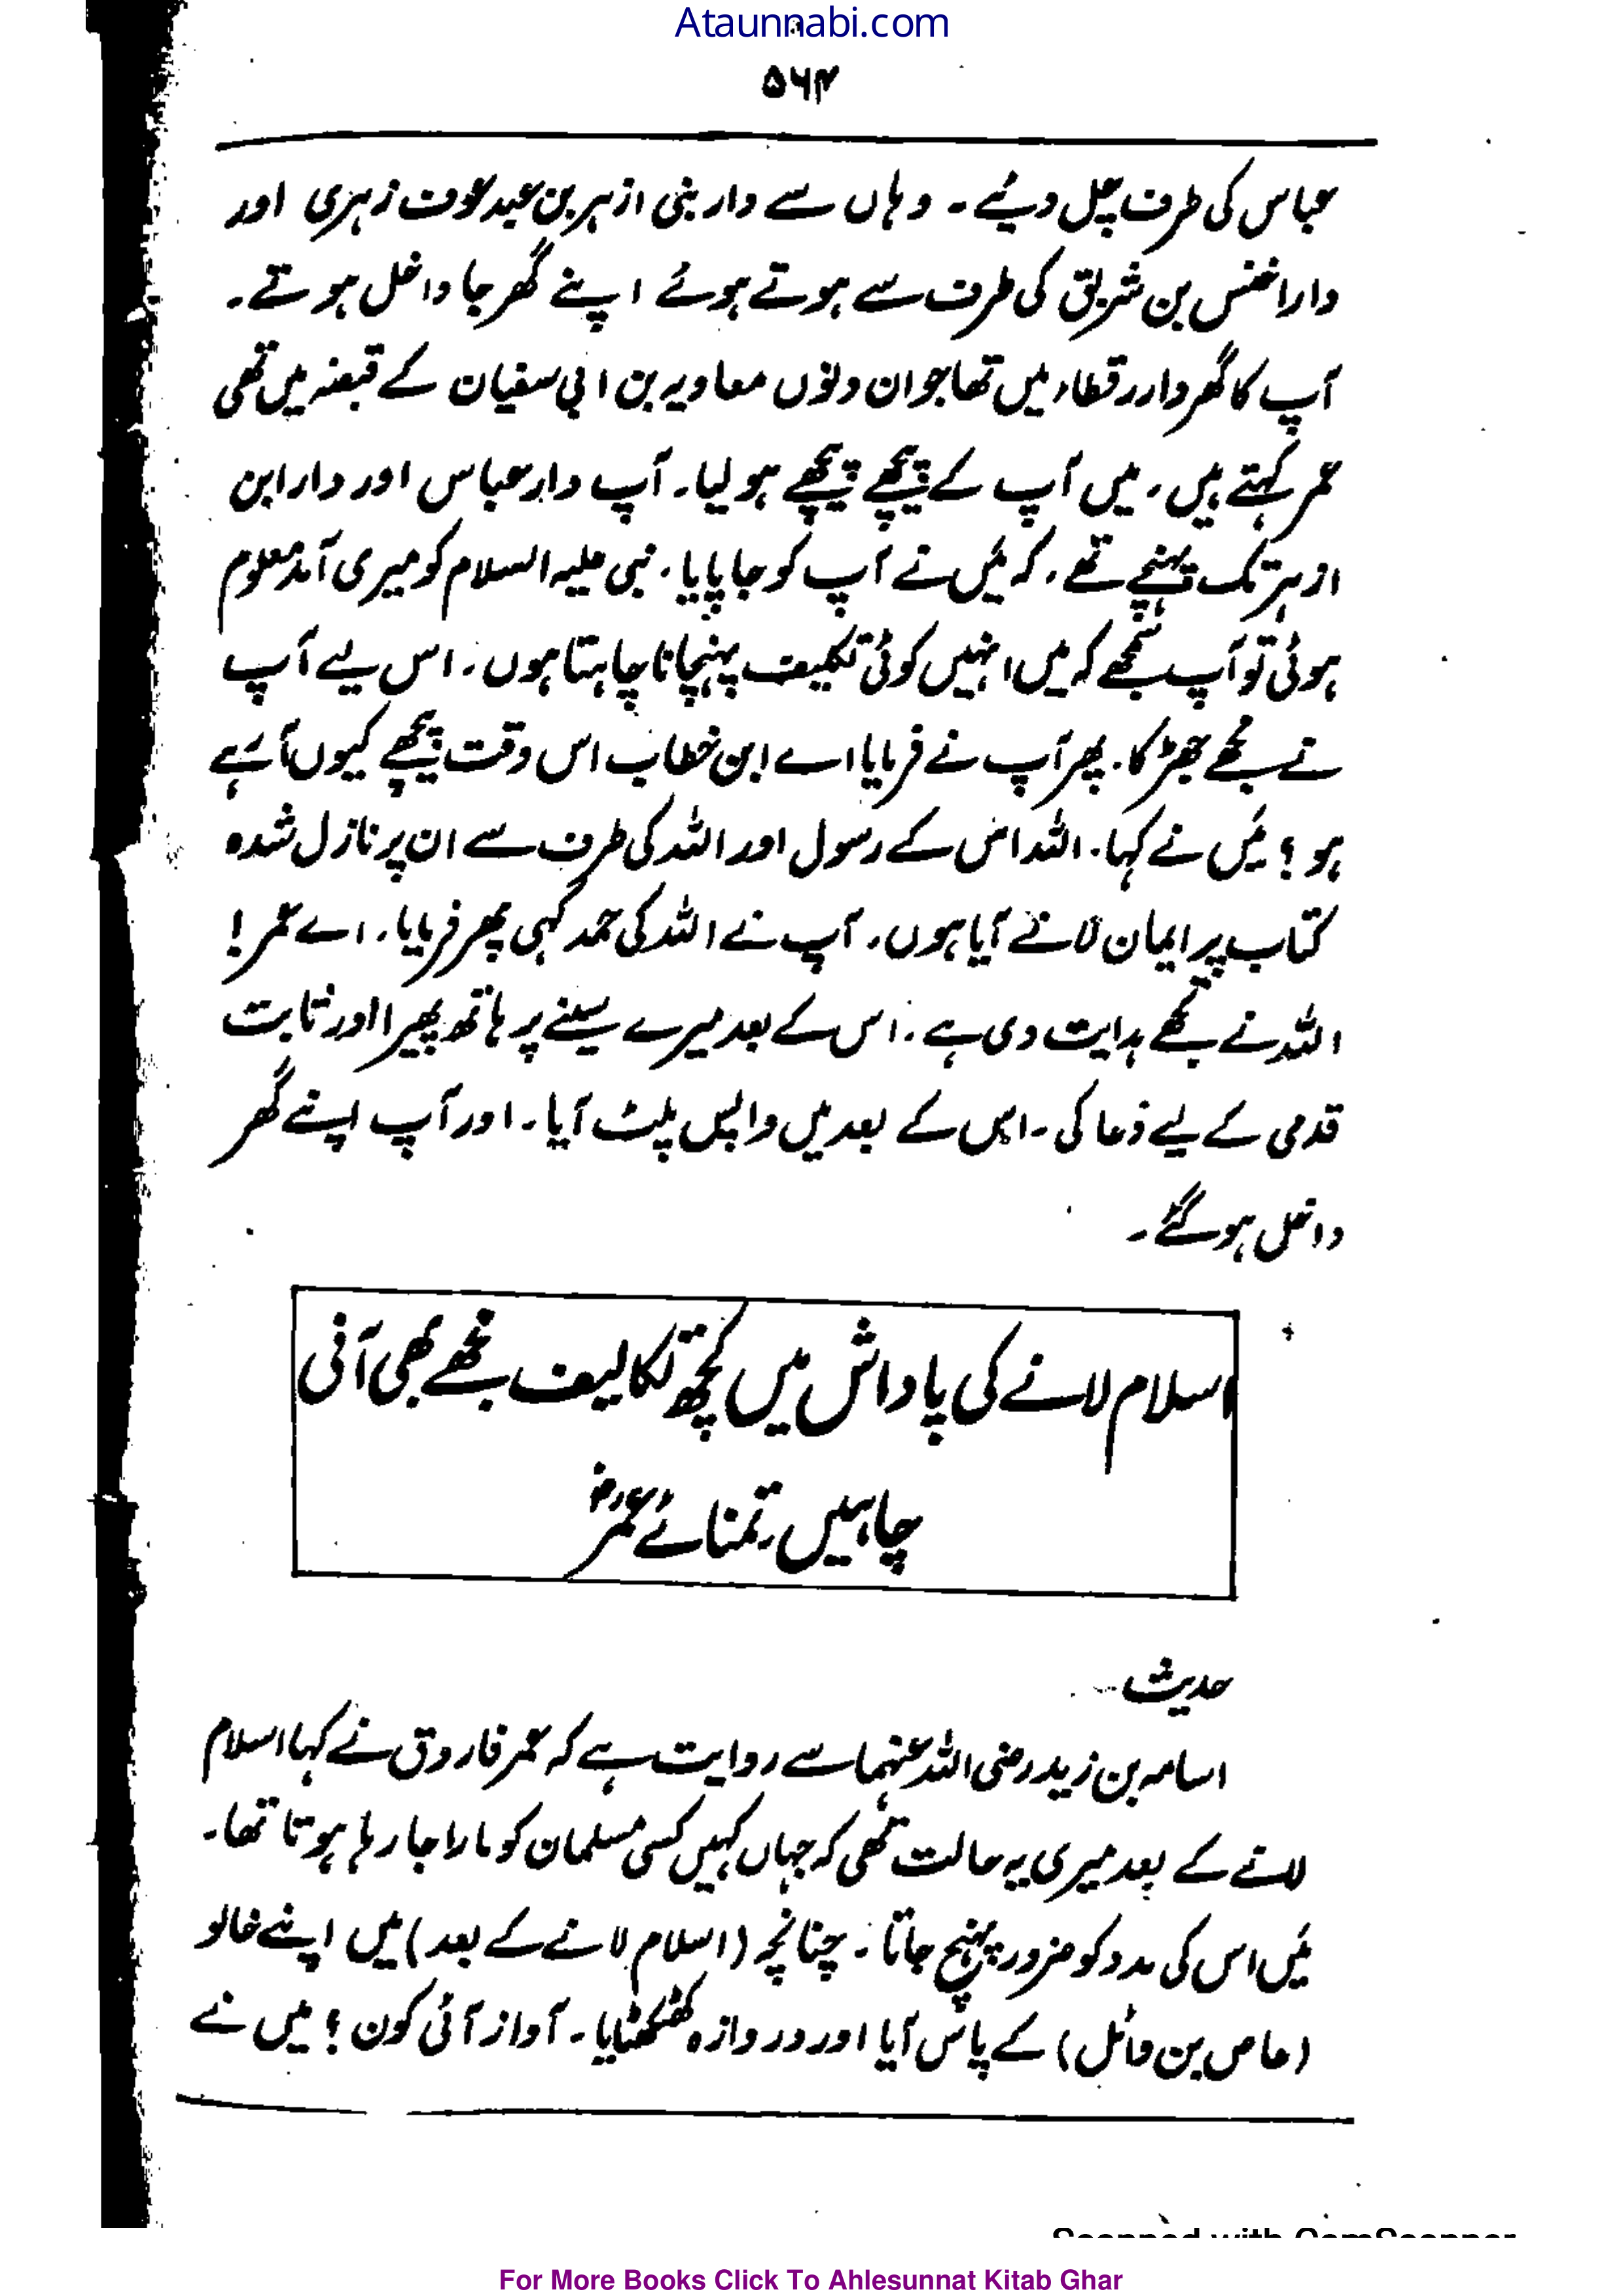 Ataunnabi.com
۵۶۴
عباس کی طرف چل دیئے ۔ وہاں سے دار بنی ازہر بن عبد عوف زہری اور
دار اخنس بن شریق کی طرف سے ہوتے ہوئے اپنے گھر جا داخل ہوتے۔
آپ کا گھر دار رقطاء میں تھا جو ان دنوں معاویہ بن ابی سفیان کے قبضہ میں تھی
عمر کہتے ہیں، میں آپ کے پیچھے پیچھے ہو لیا۔ آپ دار عباس اور دار ابن
ازہر تک پہنچے تھے، کہ میں نے آپ کو جا پایا، نبی علیہ السلام کو میری آمد معلوم
ہوئی تو آپ سمجھے کہ میں انہیں کوئی تکلیف پہنچانا چاہتا ہوں، اس لیے آپ
نے مجھے جھڑکا، پھر آپ نے فرمایا اے ابن خطاب اس وقت پیچھے کیوں آئے
ہو ؟ میں نے کہا۔ اللہ اس کے رسول اور اللہ کی طرف سے ان پر نازل شدہ
کتاب پر ایمان لانے آیا ہوں، آپ نے اللہ کی حمد کہی پھر فرمایا، اے عمر !
اللہ نے تجھے ہدایت دی ہے، اس کے بعد میرے سینے پر ہاتھ پھیرا اور ثابت
قدمی کے لیے دعا کی ۔ اس کے بعد میں واپس پلٹ آیا ۔ اور آپ اپنے گھر
داخل ہو گئے ۔
اسلام لانے کی پاداش میں کچھ تکالیف مجھے بھی آنی
چاہئیں، تمنائے عمرؓ
حدیث
اسامہ بن زید رضی اللہ عنہما سے روایت ہے کہ عمر فاروق نے کہا اسلام
لانے کے بعد میری یہ حالت تھی کہ جہاں کہیں کسی مسلمان کو مارا جا رہا ہوتا تھا۔
میں اس کی مدد کو ضرور پہنچ جاتا ۔ چنانچہ (اسلام لانے کے بعد) میں اپنے خالو
(عاص بن وائل) کے پاس آیا اور دروازہ کھٹکھٹایا ۔ آواز آئی کون ؟ میں نے
Scanned with CamScanner
For More Books Click To Ahlesunnat Kitab Ghar